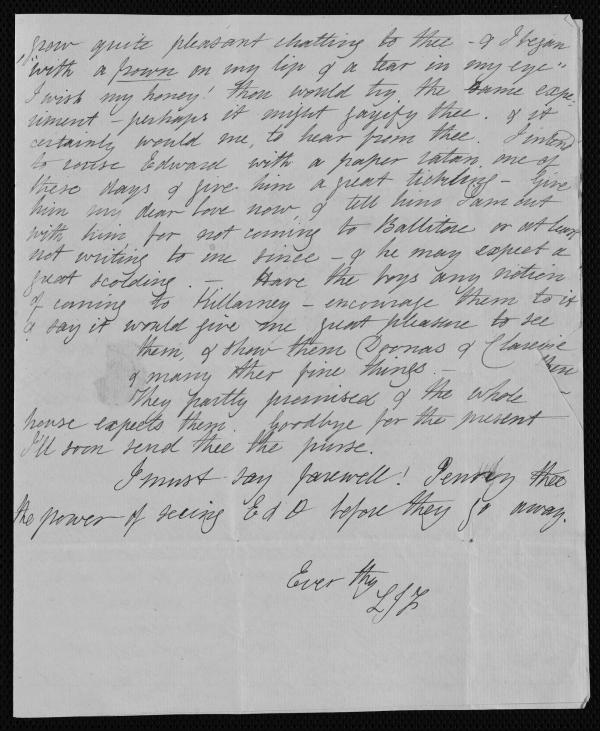 grow quite pleasant chatting to thee - & I began
"with a frown on my lip & a tear in my eye"
I wish my honey! thou would try the same expe-
riment - perhaps it might gayify thee. & it
certainly would me, to hear from thee. I intend
to rouse Edward with a paper one of
these days & give him a great tickling - Give
him my dear love now, & tell him I am out
with him, for not coming to Ballitore or at least
not writing to me since - & he may expect a
great scolding. - Have the boys any notion
of coming to Killarney - encourage them to it
& say it would give me great pleasure to see
them, & show them Doonas & Clareville
& many other fine things. - then -
They partly promised & the whole
house expects them. Goodbye for the present
I'll soon send thee the purse.
I must say farewell! I envy thee
the power of seeing E d O before they go away.
Ever thy
L J F